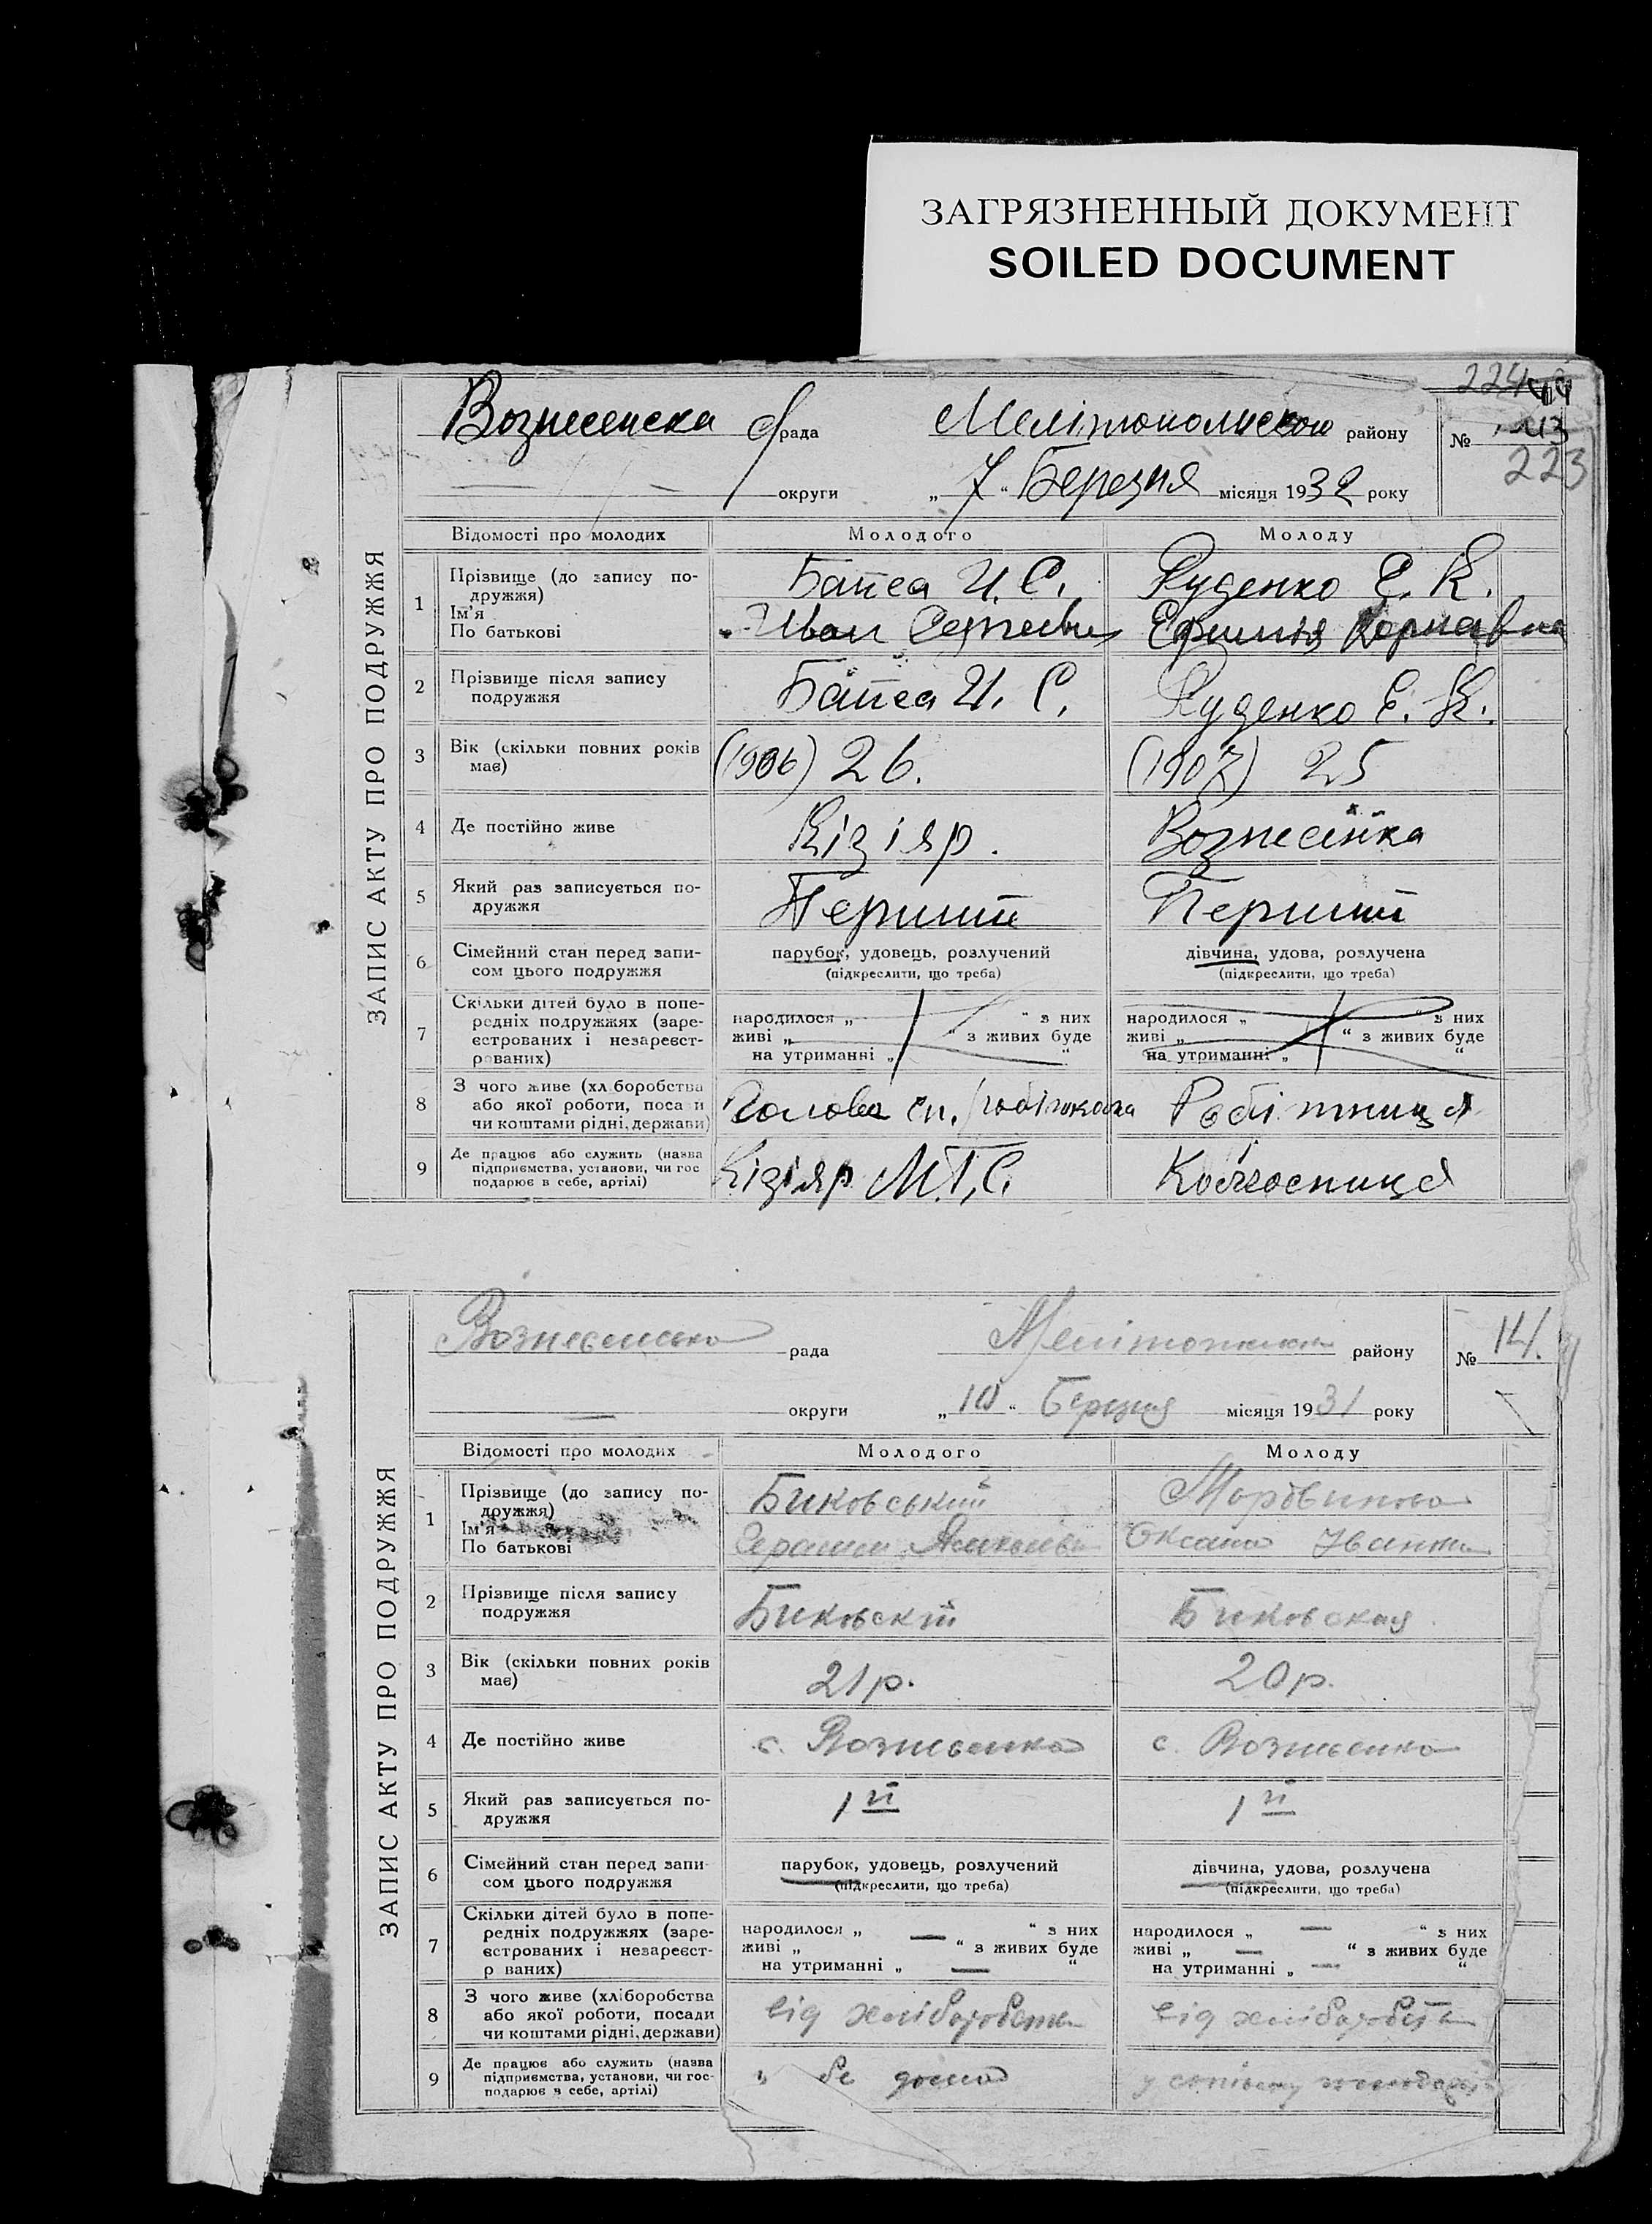 ЗАГРЯЗНЕННЫЙ ДОКУМЕНТ
SOILED DOCUMENT
224
Вознесенска рада Мелітопольською району № 113
223
округи „ 7 “ Березня місяця 1932 року
ЗАПИС АКТУ ПРО ПОДРУЖЖЯ
Відомості про молодих Молодого Молоду
1 Прізвище (до запису подружжя) И. С. Руденко Е. К.
Ім'я
По батькові Иван Сергеевич
2 Прізвище після запису подружжя И. С. Руденко Е. К.
3 Вік (скільки повних років має) (1906) 26. (1907) 25
4 Де постійно живе Кізіяр. Вознесенка
5 Який раз записується подружжя Перший Перший
6 Сімейний стан перед записом цього подружжя парубок, удовець, розлучений дівчина, удова, розлучена
(підкреслити, що треба) (підкреслити, що треба)
7 Скільки дітей було в попередніх подружжях (зареєстрованих і незареєстрованих) народилося „ “ з них народилося „ “ з них
живі „ “ з живих буде живі „ “ з живих буде
на утриманні „ “ на утриманні „ “
8 З чого живе (хліборобства або якої роботи, посади чи коштами рідні, держави) Голова Робітниця
9 Де працює або служить (назва підприємства, установи, чи господарює в себе, артілі) Кізіяр М.Т.С. Колгосниця
Вознесенська рада району № 14.
округи „ 10 “ Березня місяця 1931 року
ЗАПИС АКТУ ПРО ПОДРУЖЖЯ
Відомості про молодих Молодого Молоду
1 Прізвище (до запису подружжя) Биковський Мордвинова
Ім'я
По батькові Оксана Іванівна
2 Прізвище після запису подружжя Биковскій Биковская
3 Вік (скільки повних років має) 21 р. 20 р.
4 Де постійно живе с. Вознесенка с. Вознесенка
5 Який раз записується подружжя 1й 1й
6 Сімейний стан перед записом цього подружжя парубок, удовець, розлучений дівчина, удова, розлучена
(підкреслити, що треба) (підкреслити, що треба)
7 Скільки дітей було в попередніх подружжях (зареєстрованих і незареєстрованих) народилося „ — “ з них народилося „ — “ з них
живі „ “ з живих буде живі „ — “ з живих буде
на утриманні „ — “ на утриманні „ — “
8 З чого живе (хліборобства або якої роботи, посади чи коштами рідні, держави) від хліборобства від хліборобства
9 Де працює або служить (назва підприємства, установи, чи господарює в себе, артілі) дома